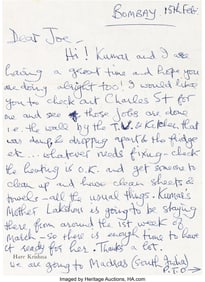 BOMBAY 15TH Feb.
Dear Joe -
Hi! Kumar and I are
having a great time and hope you
are doing alright too! I would like
you to check out Charles St for
me and see these jobs are done
i.e. the wall by the T.V. & Kitchen that
was damp & dripping apart & the fridge
etc... whatever needs fixing - check
the heating is O.K. and get someone to
clean up and have clean sheets &
towels - all the usual things. Kumar's
Mother Lakshmi is going to be staying
there from around the 1st week of
March - so there is enough time to have
it ready for her. Thanks a lot.
Hare Krishna
We are going to Madras (South India)
P.T.O →
Imaged by Heritage Auctions, HA.com